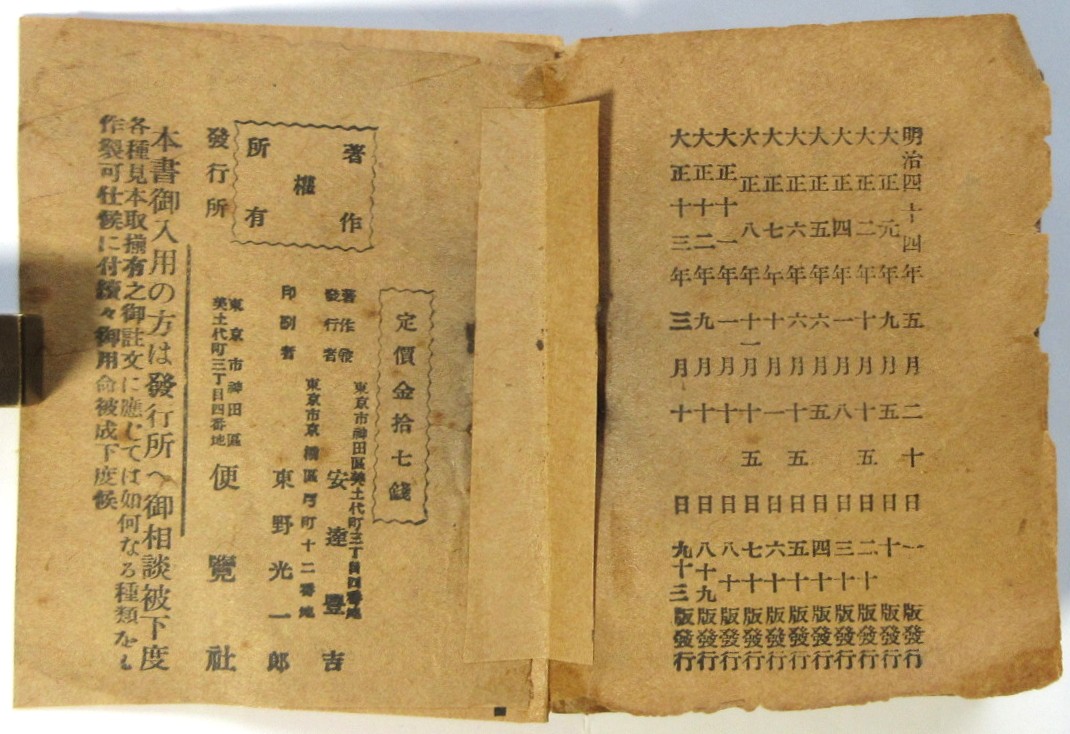 明治四十四年五月二十日一版發行
大正元年九月五日十版發行
大正二年十月十五日二十版發行
大正四年一月八日三十版發行
大正五年六月五日四十版發行
大正六年六月十五日五十版發行
大正七年十月一日六十版發行
大正八年十一月十五日七十版發行
大正十一年一月十日八十版發行
大正十二年九月十日八十九版發行
大正十三年三月十日九十三版發行
定價金拾七錢
著作
權
所有
東京市神田區美土代町三丁目四番地
著作兼
發行者
安達豐吉
東京市京橋區町十二番地
印刷者
東野光一郎
發行所
東京市神田區
美土代町三丁目四番地
便覽社
本書御入用の方は發行所へ御相談被下度
各種見本取揃有之御註文に應じては如何なる種類をも
作製可仕候に付續々御用命被成下度候